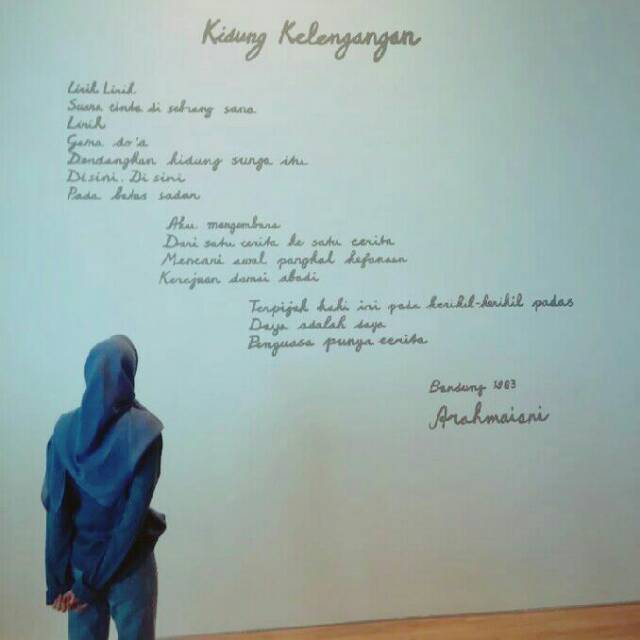 Kidung Kelengangan
Lirih Lirih
Suara cinta di sebrang sana
Lirih
Gema do'a
Dendangkan kidung surga itu
Disini. Di sini
Pada batas sadar
Aku mengembara
Dari satu cerita ke satu cerita
Mencari awal pangkal kefanaan
Kerajaan damai abadi
Terpijak kaki ini pada kerikil-kerikil padas
Daya adalah saya
Penguasa punya cerita
Bandung 1983
Arahmaiani